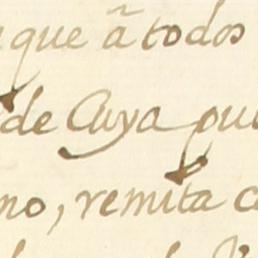 que ã todos
de Cuya pu
no, remita c